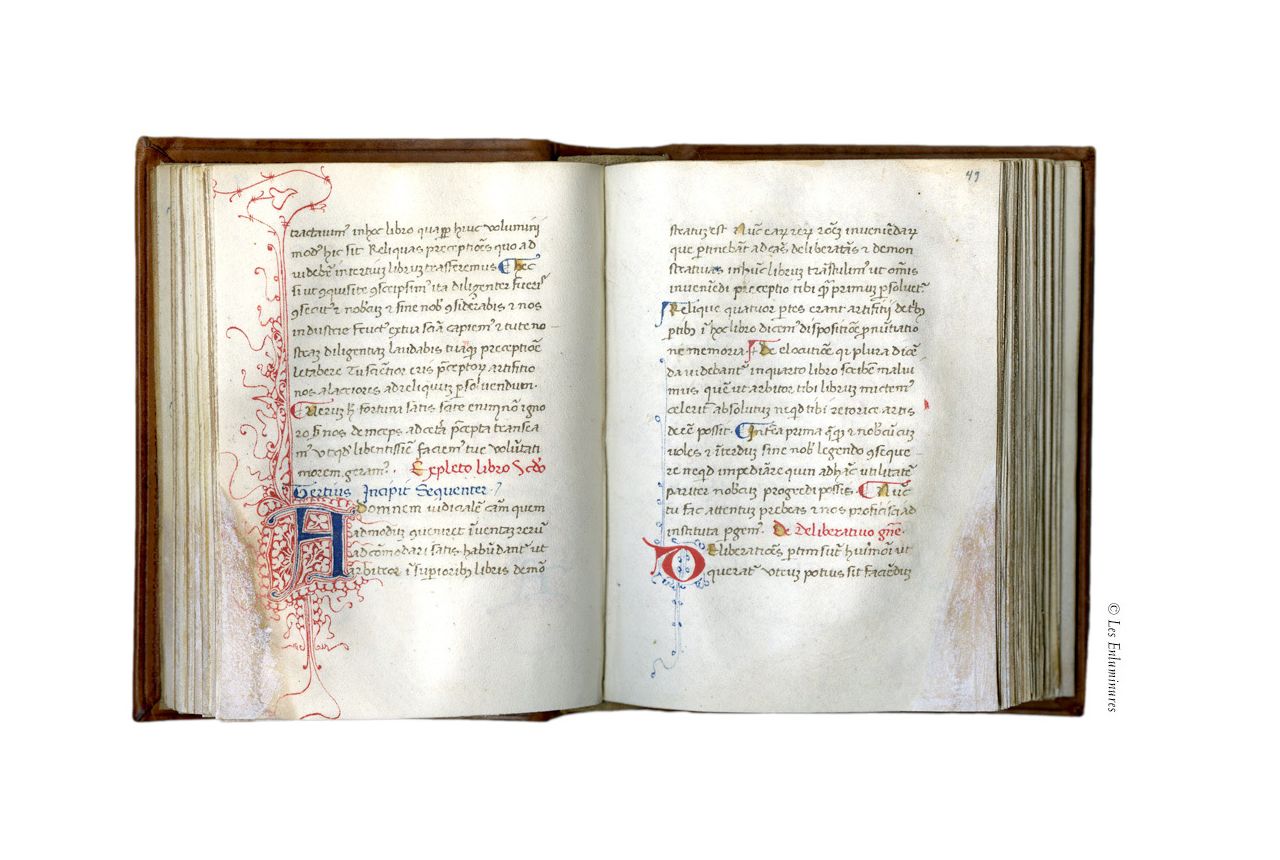 tractauim᷒ in hoc libro quaꝓp huic volumini
mod᷒ hic sit Reliquas preceptio᷒es quo ad
uidebit᷒ in tertiuʒ libruʒ trasferemus Hec
si ut ꝯquisite ꝯscripsim᷒ ita diligenter fueris
ꝯsecut᷒ ⁊ nobcuʒ ⁊ sine nob᷒ ꝯsiderabis ⁊ nos
industrie fruct᷒ ex tua sciā capiem᷒ ⁊ tute no
stram diligentiaʒ laudabis tuaqʒ preceptiōe
letabere Tu sciētior eris p̄ceptoꝝ artificio
nos alacriores ad reliquuʒ ꝑsoluendum.
Veruʒ h̄ fortuna satis scate enī qʒ nō igno
ro ħ nos deinceps ad cetā p̄cepta transea
m᷒ vt qđ libentissiē faciem᷒ tue volūtati
morem geram᷒. Expleto libro Scđo
Tertius Incipit Sequenter
AD omnem iudicialē cām quem
admoduʒ queniret iuentaʒ rerū
ad cōmodari satis habūdant᷒ ut
arbitror i supioribʒ libris demō
49
stratuʒ est Nūc eaꝝ reꝝ rōēʒ inueniēdaꝝ
que ꝑtinebāt ad cās deliberatās ⁊ demon
stratiuas in hūc libruʒ trāstulim᷒ ut om̄is
inueniēdi preceptio tibi q̄ꝫ primuʒ ꝑsoluet᷒
Relique quatuor ꝑtes erant artifitii de trib᷒
ꝑtibʒ i hoc libro dicem᷒ dispositiōe ꝓnūtiatio
ne memoria. De elocutiōe qꝛ plura dicē
da uidebant᷒ in quarto libro scribē malui
mus quē ut arbitror tibi libruʒ mictem᷒
celerit᷒ absolutuʒ ne qđ tibi retorice artis
deēē possit. Intēa prima q̄qʒ ⁊ nobcūʒ cuʒ
uoles ⁊ iterduʒ sine nob᷒ legendo ꝯseque
re ne qđ impediāre quin ad hāc utilitatē
pariter nobcuʒ progredi possis. Nūc
tu fac attentuʒ prebeas ⁊ nos proficisci ad
instituta ꝑgem᷒. De deliberatiuo gn̄e.
Deliberatiōes ꝑtim sūt huiūmoi ut
querat᷒ vtruʒ potius sit faciēduʒ
© Les Enluminures